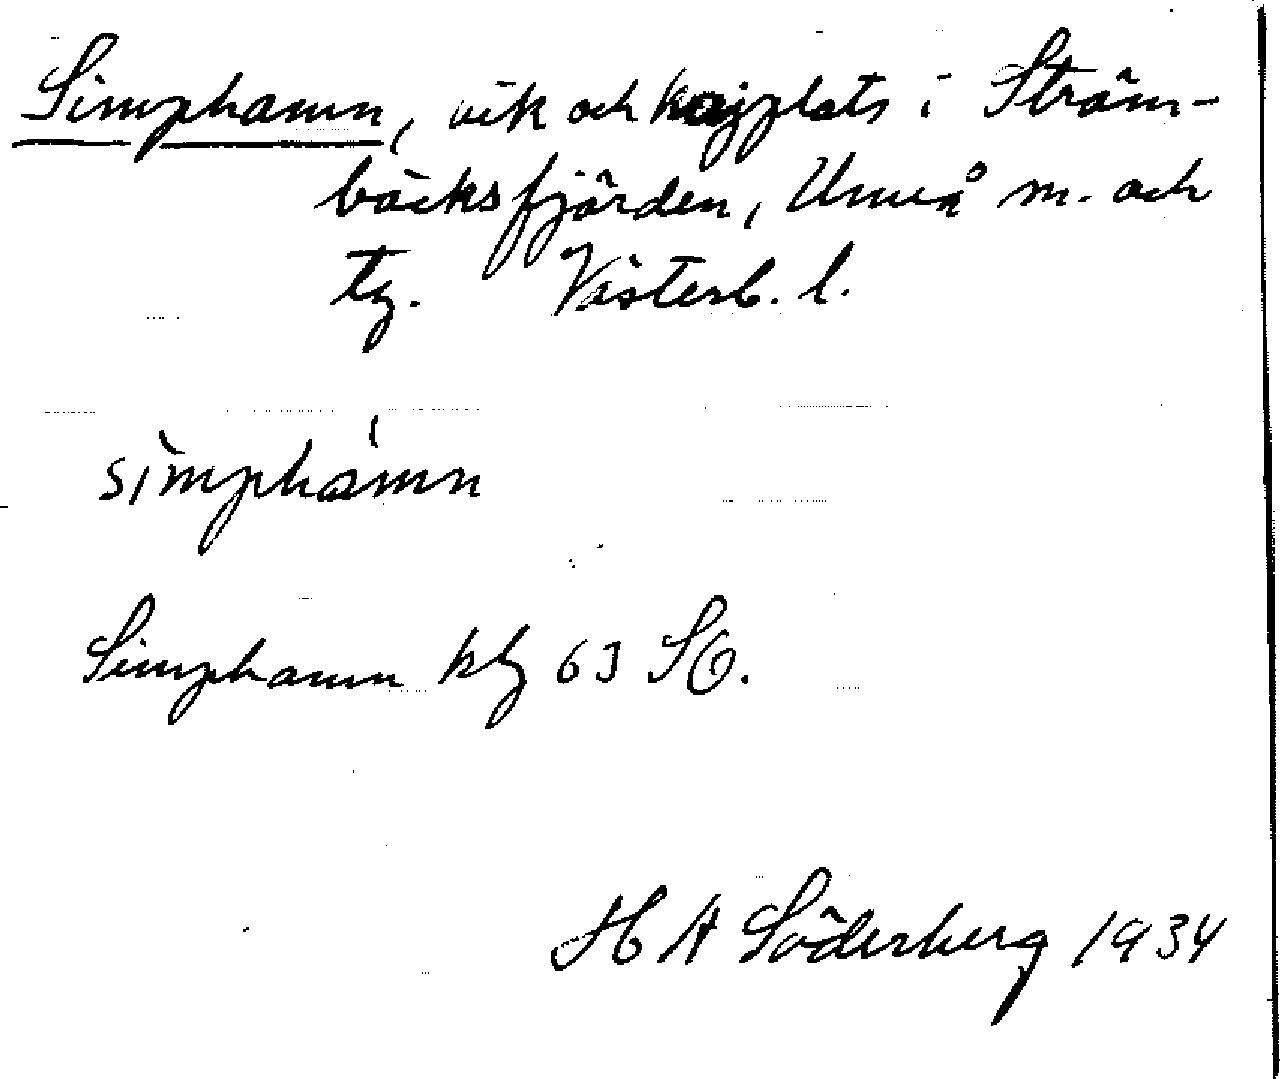 Simphamn, vik och kajplats i Ström-
bäcksfjärden, Umeå m. och
tg. Västerb. l.
sìmphámn
Simphamn kbl 63 SO.
H A Söderberg 1934